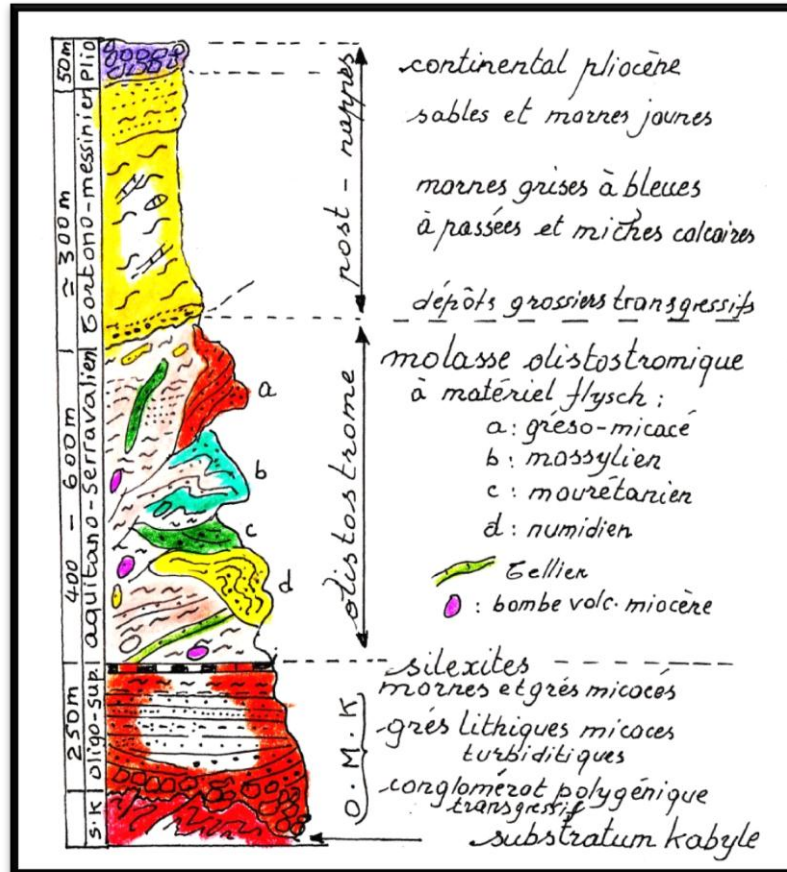 50m
plio
≃ 300m
tortono-messinien
400 - 600m
aquitano-serravalien
250m
oligo-sup.
s.k
a
b
c
d
post-nappes
olistostrome
O.M.K
continental pliocène
sables et marnes jaunes
marnes grises à bleues
à passées et miches calcaires
dépôts grossiers transgressifs
molasse olistostromique
à matériel flysch :
a : gréso-micacé
b : massylien
c : maurétanien
d : numidien
tellien
: bombe volc. miocène
silexites
marnes et grés micacés
grés lithiques micaces
turbiditiques
conglomérat polygénique
transgressif
substratum kabyle